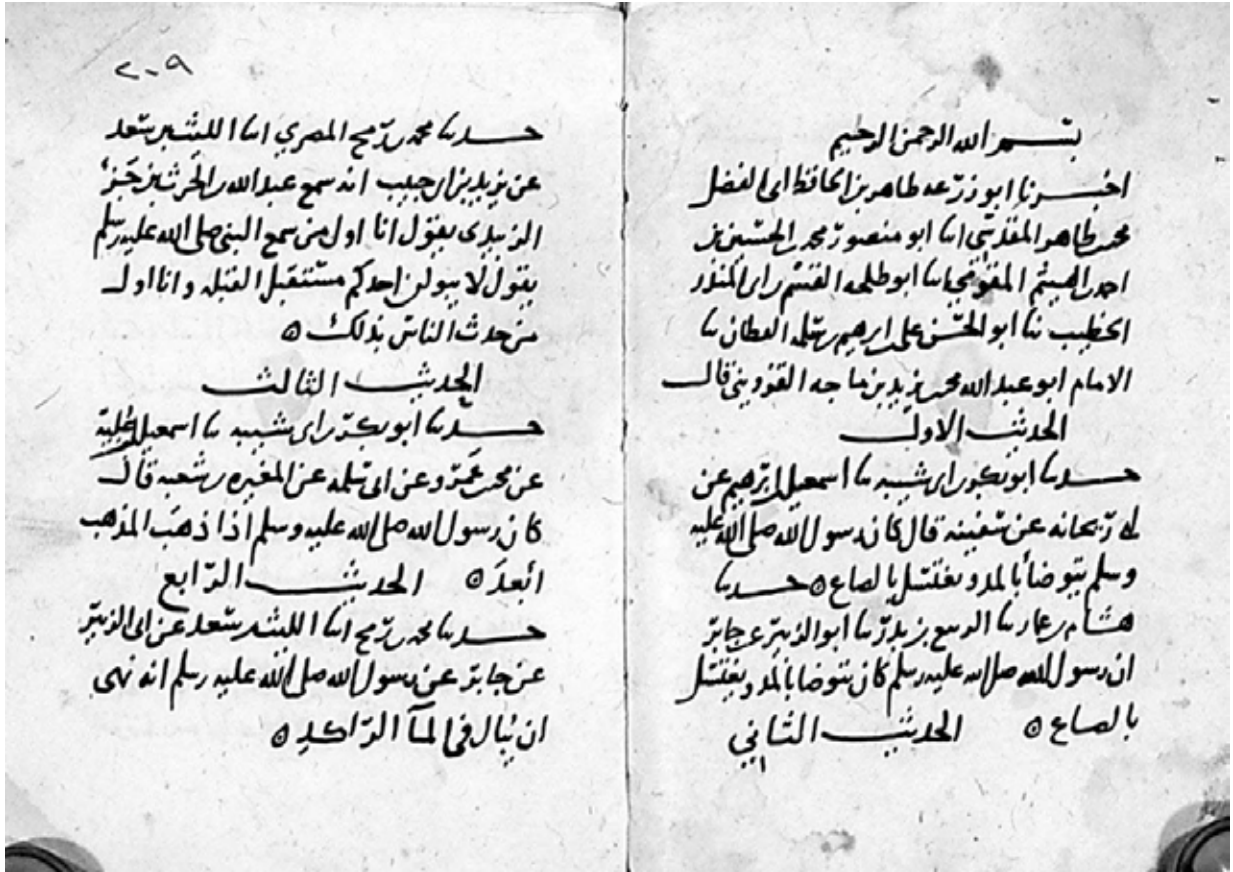 بسم الله الرحمن الرحيم
اخبرنا ابو زرعه طاهر بن الحافظ ابى الفضل
محمد بن طاهر المقدسي انا ابو منصور محمد بن الحسين بن
احمد بن الهيثم المقومي انا ابو طلحه القسم بن ابى المنذر
الخطيب نا ابو الحسن على بن ابرهيم بن سلمه القطان نا
الامام ابو عبد الله محمد بن يزيد بن ماجه القزويني قال
الحديث الاول
حدثنا ابو بكر بن ابى شيبه نا اسمعيل بن ابرهيم عن
ابى ريحانه عن سفينه قال كان رسول الله صلى الله عليه
وسلم يتوضأ بالمد ويغتسل بالصاع ه حدثنا
هشام بن عمار نا الربيع بن بدر نا ابو الزبير عن جابر
ان رسول الله صلى الله عليه وسلم كان يتوضا بالمد ويغتسل
بالصاع ه الحديث الثاني
٢٠٩
حدثنا محمد بن رمح المصري انا الليث بن سعد
عن يزيد بن ابى حبيب انه سمع عبد الله بن الحرث بن جزء
الزبيدى يقول انا اول من سمع النبى صلى الله عليه وسلم
يقول لا يبولن احدكم مستقبل القبله وانا اول
من حدث الناس بذلك ه
الحديث الثالث
حدثنا ابو بكر بن ابى شيبه نا اسمعيل بن علية
عن محمد بن عمرو عن ابى سلمه عن المغيره بن شعبه قال
كان رسول الله صلى الله عليه وسلم اذا ذهب المذهب
ابعد ه الحديث الرابع
حدثنا محمد بن رمح انا الليث بن سعد عن ابى الزبير
عن جابر عن رسول الله صلى الله عليه وسلم انه نهى
ان يبال فى المآ الراكد ه